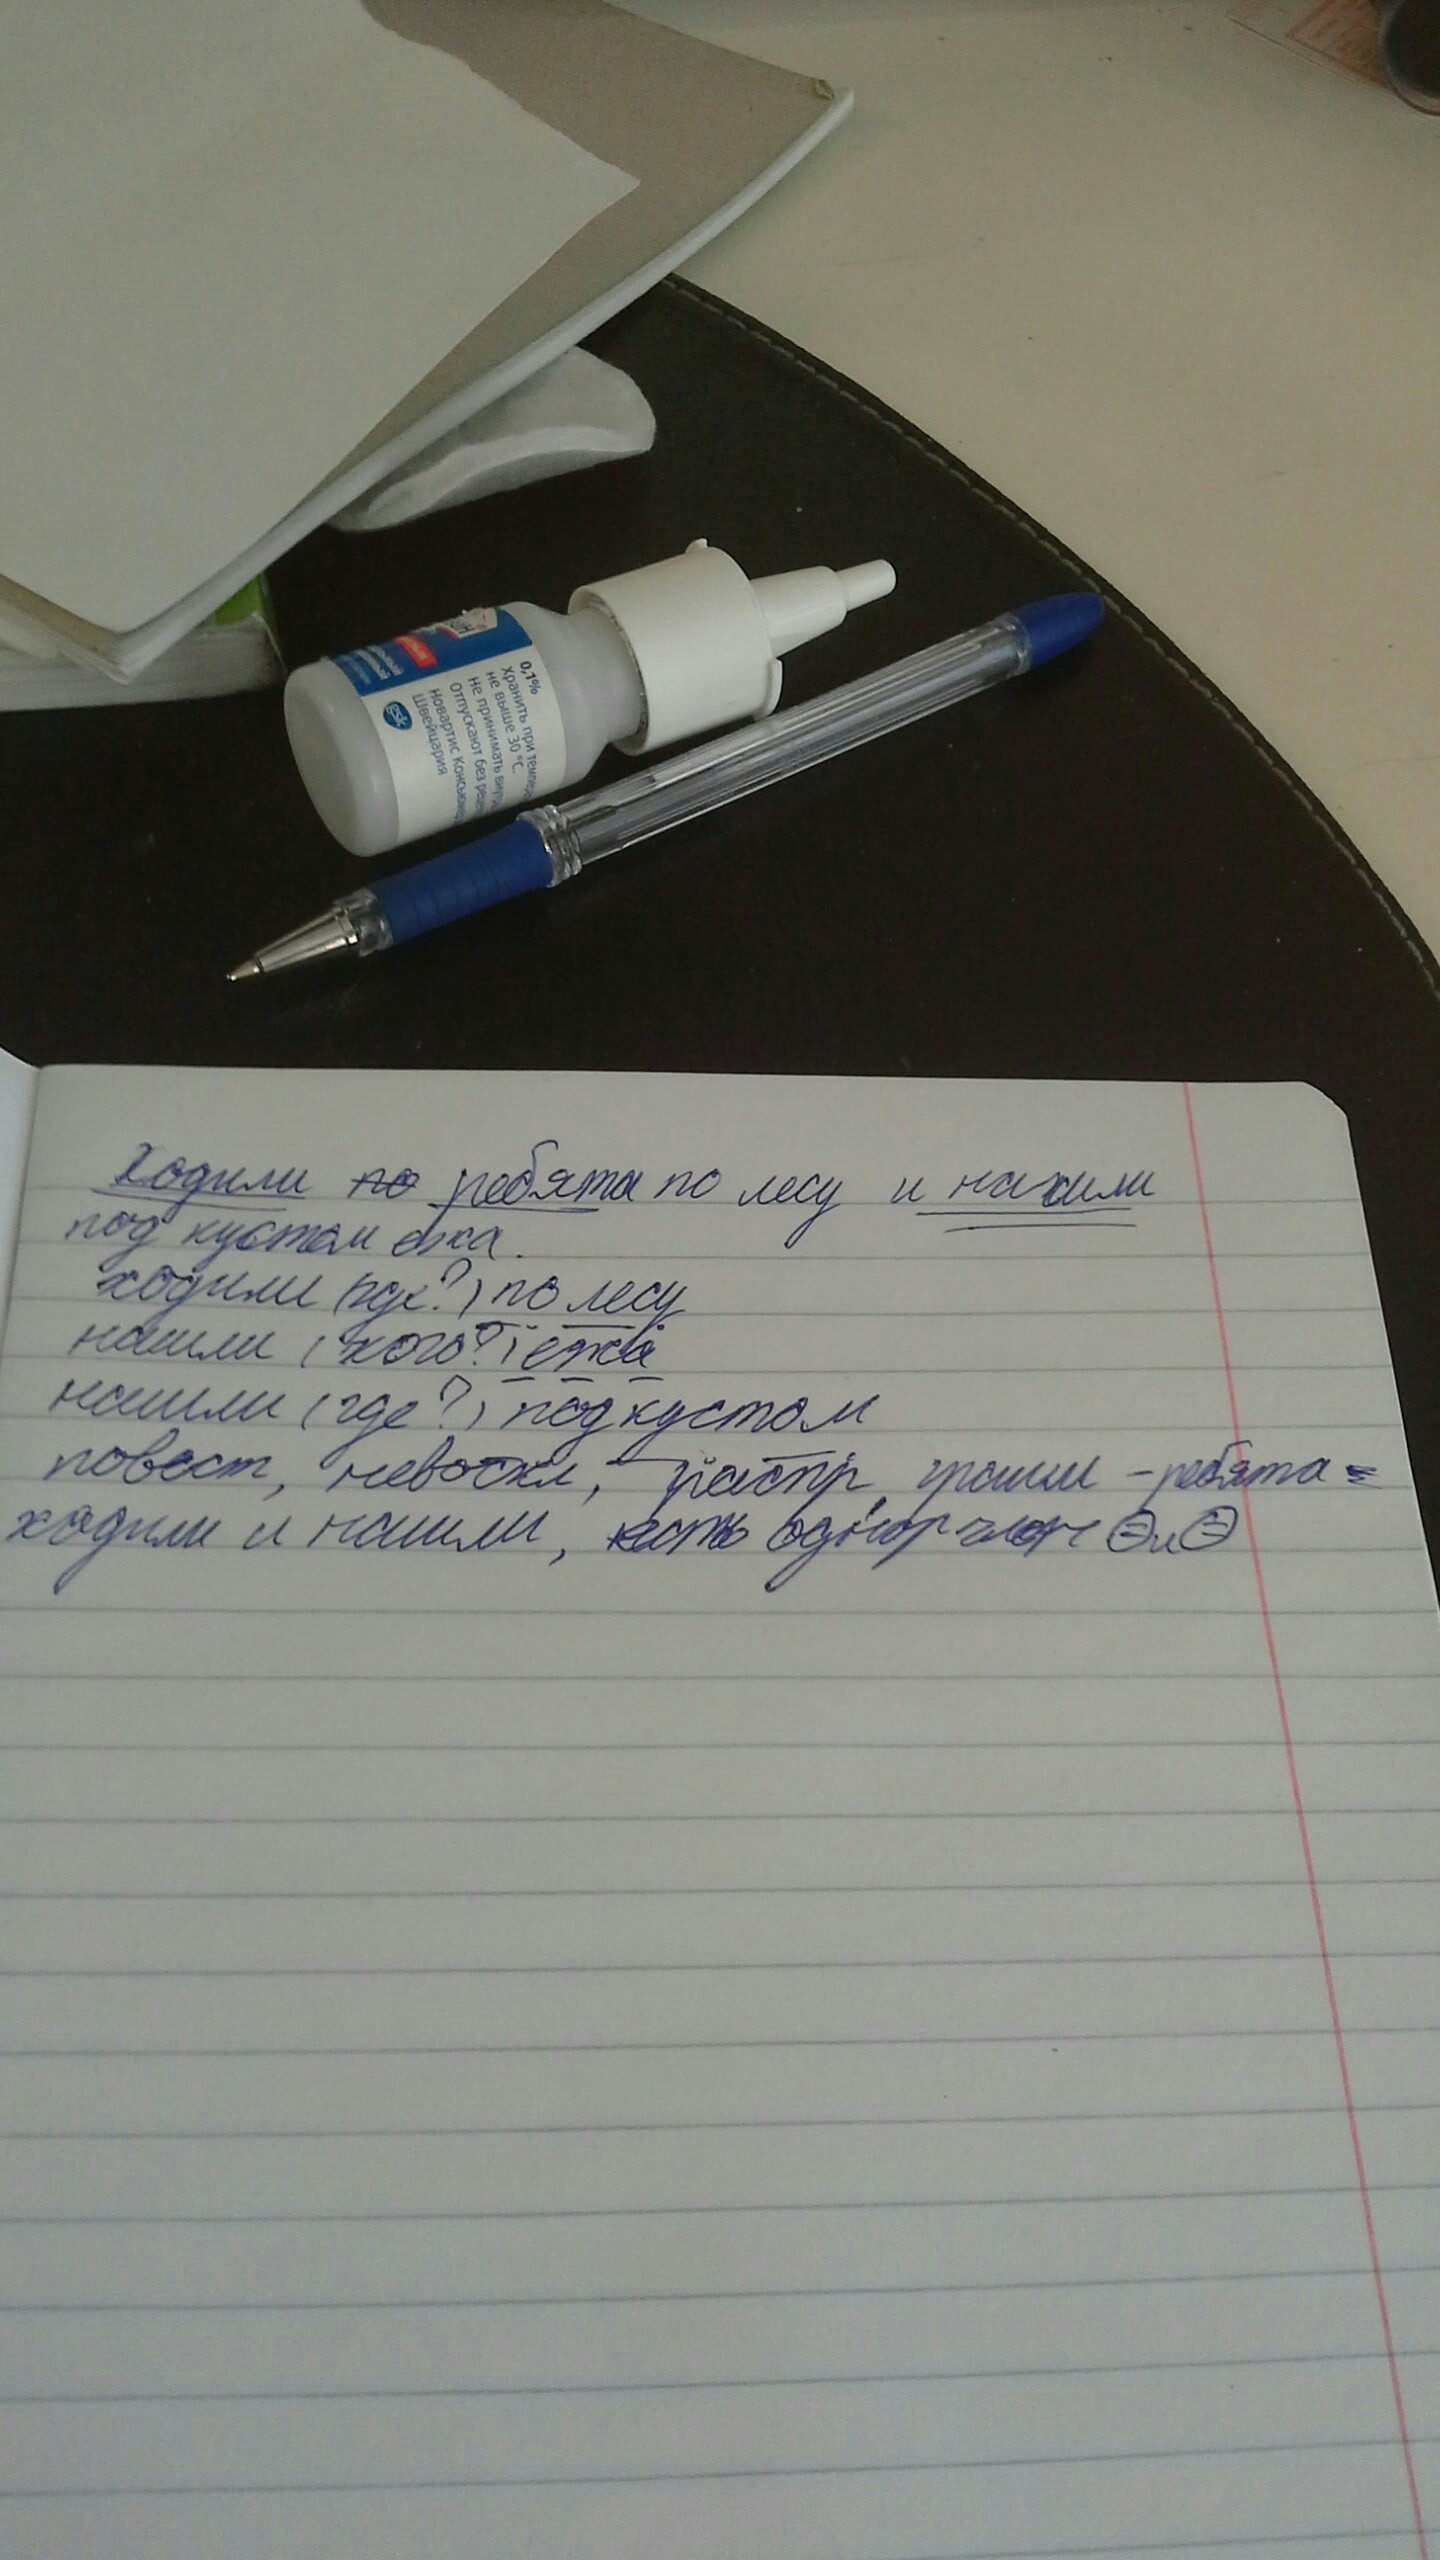 0,1%
Хранить при темпер
не выше 30 °C.
Не принимать внут
Отпускают без реце
Новартис Консьюме
Швейцария
gsk
Ходили по ребята по лесу и нашли
под кустом ежа.
ходили (где?) по лесу
нашли (кого?) ежа
нашли (где?) под кустом
повест, невоскл, распр, грамм - ребята
ходили и нашли, есть однор